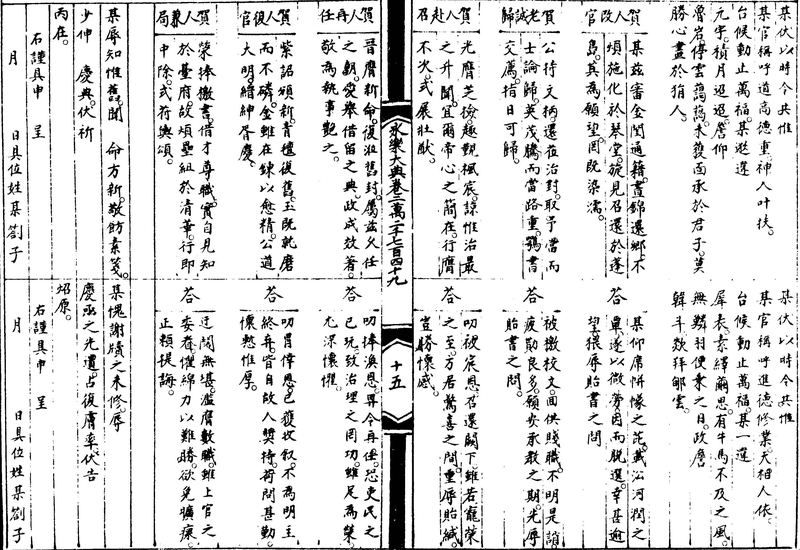 某伏以時令共惟
某官稱呼道高德重神人叶扶
台候動止萬福某逖違
元宇積月迢迢詹仰
魯岩停雲藹藹未獲面承於君子莫
勝心盡於狷人
賀人改官
某茲審金閨通籍晝錦還鄉不
煩施化於琴堂旋見召還於蓬
島其為願望罔既染濡
賀老誠歸
公持文柄還莅治封取予當而
士論歸英茂騰而當路重鶚書
交薦指日可歸
賀人赴召
光膺芝檢趣覲楓宸諒惟治最
之升聞宜爾帝心之簡在行膺
不次式展壯猷
某伏以時令共惟
某官稱呼進德修業天相人依
台候動止萬福某一違
犀表素繹爾思有牛馬不及之風
無鱗羽便乗之日政詹
韓斗欻拜郇雲
答
某仰席怙懞之芘載沾河潤之
卑遂以微勞因而脫選幸甚逾
望猥辱貽書之問
答
被檄校文面供賤職不明是誚
疲勛良多顧安承教之期光辱
貽書之問
答
叨被宸恩召還闕下雖若寵榮
之至方居驚喜之間重辱貽緘
豈勝懷感
永樂大典卷二萬二千七百四十九
十五
賀人再任
晉膺新命復涖舊封屬茲久任
之朝爰舉借留之典政成效著
敬為執事艷之
賀人復官
紫詔頒新青氊復舊玉既乾磨
而不磷金雖在鍊以愈精公道
大明縉紳胥慶
賀人兼局
榮捧檄書借才尊職實自見知
於臺府故煩疊組於清華行即
中除式符輿頌
某辱知惟舊聞 命方新敬飭素箋
少伸 慶典伏祈
丙在
右謹具申 呈
月 日具位姓某劄子
答
叨捧渙恩畀令再任恐吏民之
已玩致治理之罔功雖足為榮
尤深懷懼
答
叨冒倖恩已獲收叙不為明主
終棄皆自故人奬持荷問甚勤
懷慙惟厚
答
迂闊無堪濫膺數職雖上官之
委眷僅綿力以難勝欲免曠瘝
正賴提誨
某愧謝牘之未修辱
慶函之先遣占復膚率伏吿
炤原
右謹具申 呈
月 日具位姓某劄子